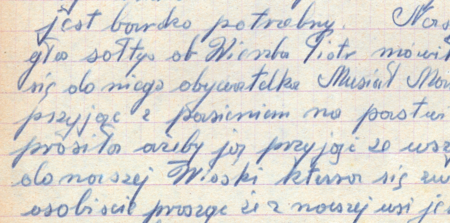 jest bardzo potrzebny. Nas
głos sołtys ob Wierzba Piotr mówił
się do niego obywatelka Musiał Mar
przyjąć z pasieniem na pastwi
prosiła ażeby ją przyjąć ze wsz
do naszej Wioski która się zw
osobiście proszę że z naszej wsi je